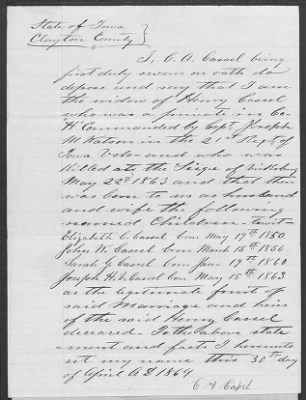 State of Iowa
Clayton County }
I, C. A. Cassel being
first duly sworn on oath do
depose and say that I am
the widow of Henry Cassel
who was a private in Co
H Commanded by Capt. Joseph
M Watson in the 21st Regt. of
Iowa Vols. and who was
Killed at the Siege of Vicksburg
May 22d 1863 and that there
was born to us as husband
and wife the following
named Children to wit
Elizabeth C. Cassel born May 17th 1850.
John W. Cassel born March 15th 1856
Sarah J. Cassel born June 19th 1860
Joseph H. L. Cassel born May 15th 1863
as the legitimate fruit of
said Marriage and heirs
of the said Henry Cassel
deceased. To the above state
ment and facts I hereunto
set my name this 30th day
of April A.D 1864
C A Casel